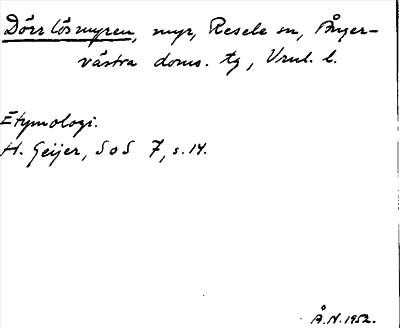 Dörrlösmyren, myr, Resele sn, Ånger-
västra doms. tg, Vnl. l.
Etymologi.
H. Geijer, SoS 7, s. 14.
Å.N. 1952.